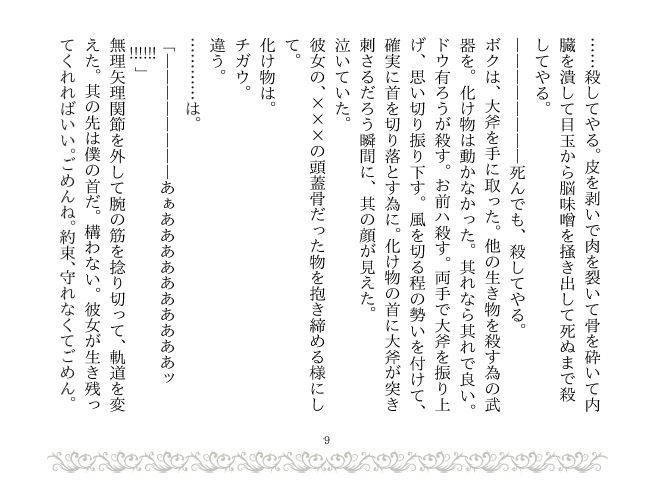 ……殺してやる。皮を剥いで肉を裂いて骨を砕いて内
臓を潰して目玉から脳味噌を掻き出して死ぬまで殺
してやる。
――――――――死んでも、殺してやる。
ボクは、大斧を手に取った。他の生き物を殺す為の武
器を。化け物は動かなかった。其れなら其れで良い。
ドウ有ろうが殺す。お前ハ殺す。両手で大斧を振り上
げ、思い切り振り下す。風を切る程の勢いを付けて、
確実に首を切り落とす為に。化け物の首に大斧が突き
刺さるだろう瞬間に、其の顔が見えた。
泣いていた。
彼女の、×××の頭蓋骨だった物を抱き締める様にし
て。
化け物は。
チガウ。
違う。
…………は。
「――――――――あぁあああああああああああッ
!!!!!!」
無理矢理関節を外して腕の筋を捻り切って、軌道を変
えた。其の先は僕の首だ。構わない。彼女が生き残っ
てくれればいい。ごめんね。約束、守れなくてごめん。
9